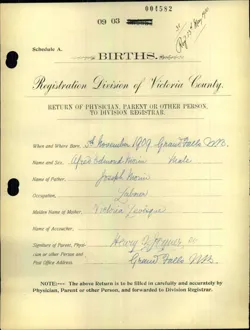 001582
09 03
Schedule A.
BIRTHS.
Registration Division of Victoria County.
RETURN OF PHYSICIAN, PARENT OR OTHER PERSON,
TO DIVISION REGISTRAR.
When and Where Born, November 1909, Grand Falls N.B.
Name and Sex, Alfred Edmond Morin Male
Name of Father, Joseph Morin
Occupation, Labourer
Maiden Name of Mother, Victoria Levesque
Name of Accoucher,
Signature of Parent, Physi-
cian or other Person and
Post Office Address
Henry
Grand Falls N.B.
NOTE:—The above Return is to be filled in carefully and accurately by
Physician, Parent or other Person, and forwarded to Division Registrar.